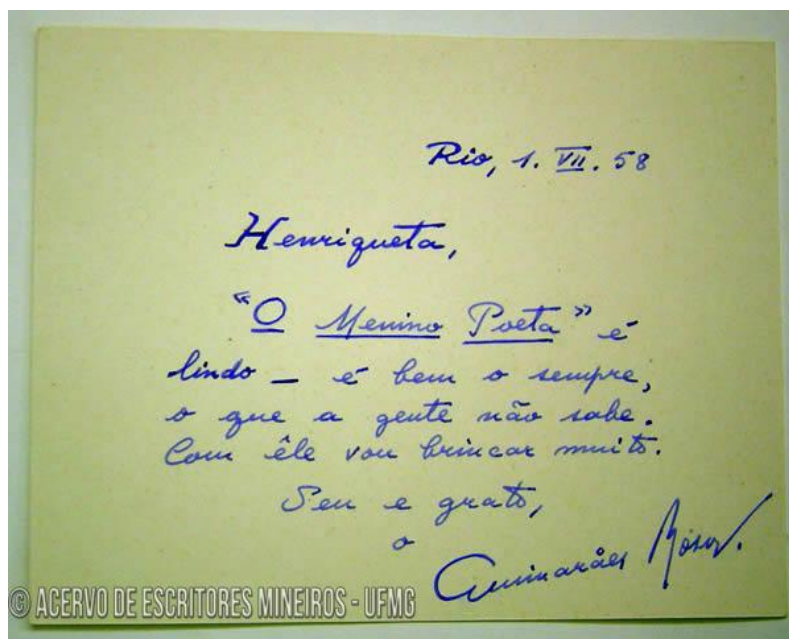 Rio, 1. VII. 58
Henriqueta,
"O Menino Poeta" é
lindo — é bem o sempre,
o que a gente não sabe.
Com êle vou brincar muito.
Seu e grato,
o
Guimarães Rosa.
© ACERVO DE ESCRITORES MINEIROS - UFMG